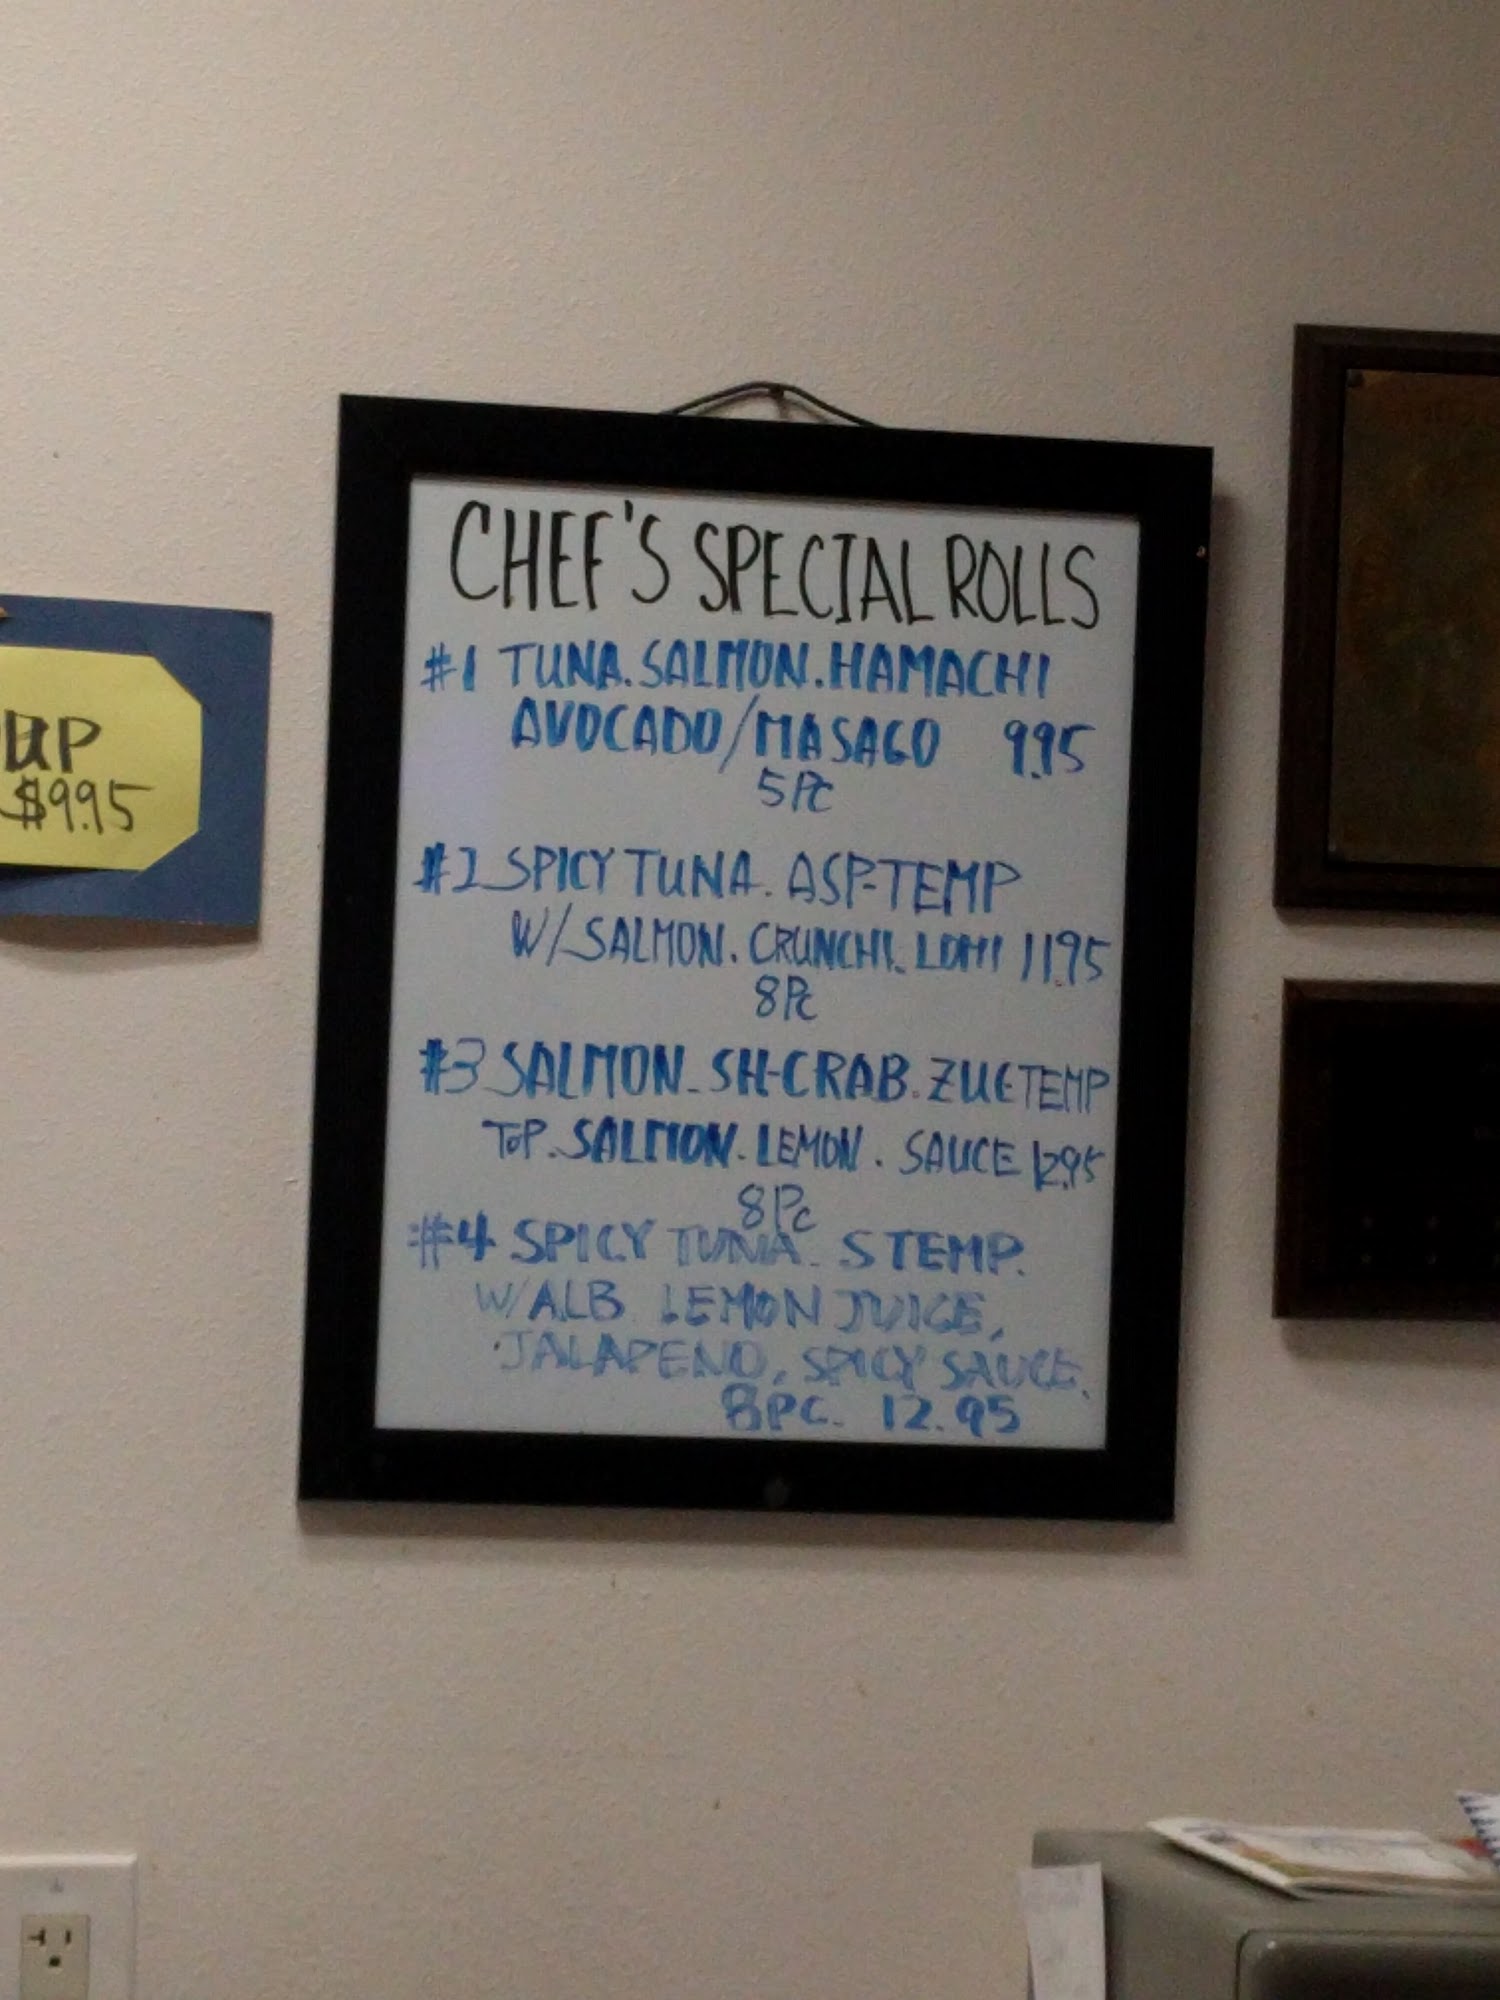 CHEF'S SPECIAL ROLLS
#1 TUNA.SALMON.HAMACHI
AVOCADO/MASAGO 9.95
5 Pc
#2 SPICY TUNA. ASP-TEMP
W/SALMON. CRUNCHI. LOMI 11.95
8 Pc
#3 SALMON. SH-CRAB. ZUC TEMP
TOP. SALMON. LEMON. SAUCE 12.95
8 Pc
#4 SPICY TUNA. S TEMP.
W/ALB LEMON JUICE,
JALAPENO, SPICY SAUCE.
8PC. 12.95
$9.95